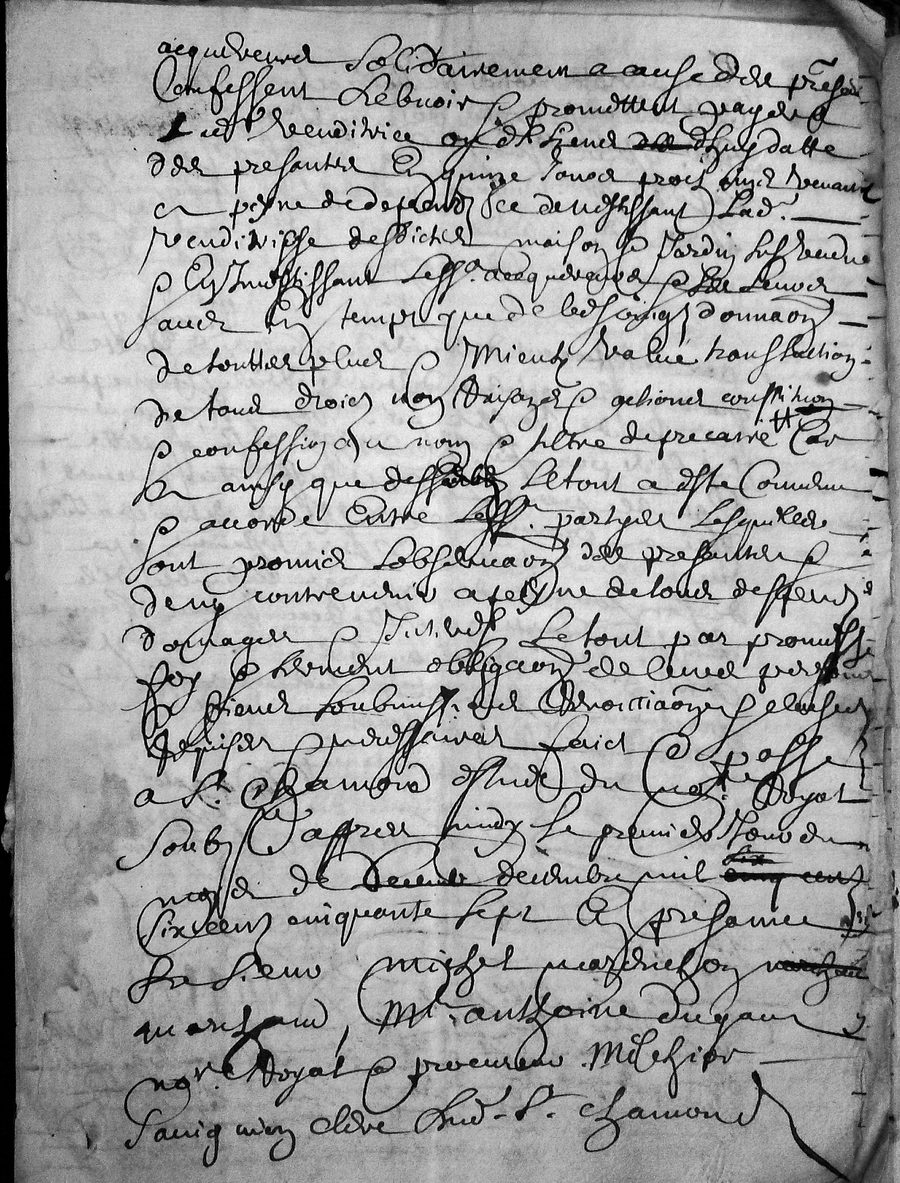 acquereurs solidairement a cause des presantes
Confessent debvoir & promettent payer a
Lad.e venditrice ou és siens dhuy datte
des presantes En quinze Jours proch.
a peyne de despens se devestissant Lad.e
vendirisse desdictes maison & Jardin sus vendus
& En Investissant Lesd. acquereurs & Les Leurs
avec
de touttes plus & Mieux value translation
de tous droictz noms Raisons & actions constitution
& confession du nom & tiltre de precaire Car
ainsy que dessus Le tout a esté Convenu
& accordé Entre Lesd. partyes Lesquelles
ont promis Lobservaon des presantes &
de ny contrevenir a peyne de tous despens
domages & Interestz Le tout par promesse
foy & serment obligaon de leurs personnes
& biens soubmissions Renonciaons & clauses
requises & necessaires faict & passé
a St. Chamond estude du not. Royal
Soub.é apres midy Le premier Jour du
moys de decembre mil
six cens cinquante sept En presance
De Sieur Michel
marchand, Mr. anthoine dugaus
nore. Royal & procureur Melchior
clerc dud. St. Chamond